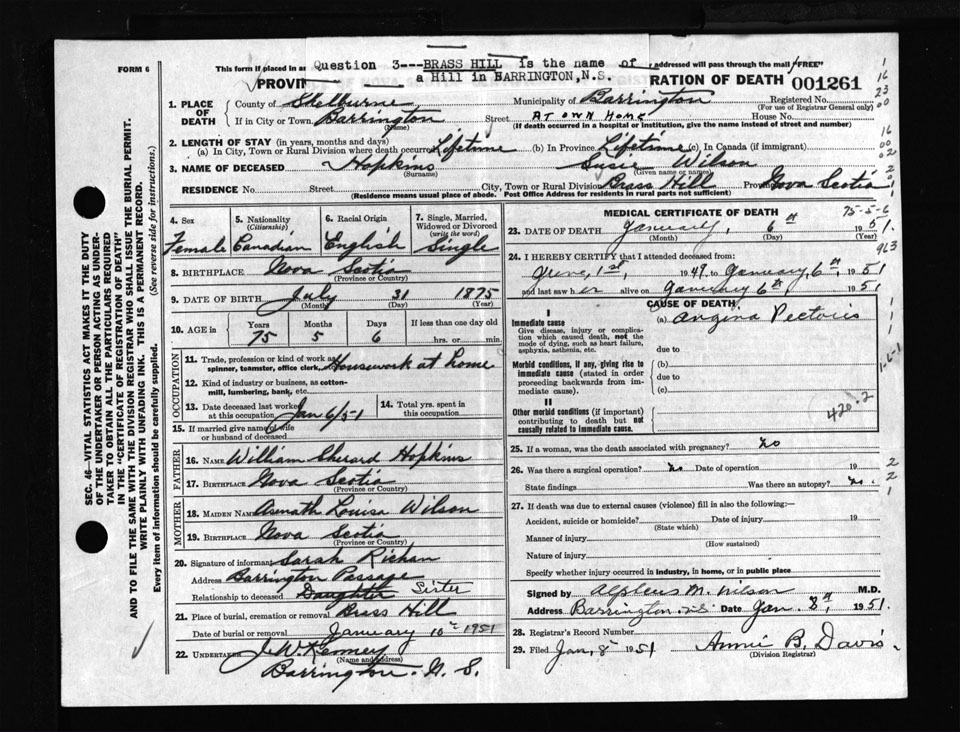 FORM 6
This form if placed in an Question 3---BRASS HILL is the name of addressed will pass through the mail "FREE"
PROVIN a Hill in BARRINGTON, N.S. RATION OF DEATH 001261
1. PLACE OF DEATH County of Shelburne Municipality of Barrington Registered No.
(For use of Registrar General only)
If in City or Town Barrington Street AT OWN HOME House No.
(Name) (If death occurred in a hospital or institution, give the name instead of street and number)
2. LENGTH OF STAY (in years, months and days)
(a) In City, Town or Rural Division where death occurred Lifetime (b) In Province Lifetime (c) In Canada (if immigrant)
3. NAME OF DECEASED Hopkins Susie Wilson
(Surname) (Given name or names)
RESIDENCE No. Street City, Town or Rural Division Brass Hill Province Nova Scotia
(Residence means usual place of abode. Post Office Address for residents in rural parts not sufficient)
4. Sex 5. Nationality (Citizenship) 6. Racial Origin 7. Single, Married, Widowed or Divorced (write the word)
Female Canadian English Single
8. BIRTHPLACE Nova Scotia
(Province or Country)
9. DATE OF BIRTH July 31 1875
(Month) (Day) (Year)
10. AGE in Years Months Days If less than one day old
75 5 6 hrs. or min.
OCCUPATION
11. Trade, profession or kind of work as spinner, teamster, office clerk, Housework at home
12. Kind of industry or business, as cotton-mill, lumbering, bank, etc.
13. Date deceased last worked at this occupation Jan 6/51 14. Total yrs. spent in this occupation
15. If married give name of wife or husband of deceased
FATHER
16. NAME William Sherard Hopkins
17. BIRTHPLACE Nova Scotia
(Province or Country)
MOTHER
18. MAIDEN NAME Asmath Louisa Wilson
19. BIRTHPLACE Nova Scotia
(Province or Country)
20. Signature of informant Sarah Richan
Address Barrington Passage
Relationship to deceased Daughter Sister
21. Place of burial, cremation or removal Brass Hill
Date of burial or removal January 10th 1951
22. UNDERTAKER J. W. Kenney
(Name and Address)
Barrington. N. S.
MEDICAL CERTIFICATE OF DEATH 75-5-6
23. DATE OF DEATH January, 6th 1951.
(Month) (Day) (Year)
963
24. I HEREBY CERTIFY that I attended deceased from:
June, 1st, 1949 to January, 6th, 1951
and last saw her alive on January 6th 1951
CAUSE OF DEATH
I
Immediate cause (a) Angina Pectoris
Give disease, injury or complication which caused death, not the mode of dying, such as heart failure, asphyxia, asthenia, etc.
due to
Morbid conditions, if any, giving rise to immediate cause (stated in order proceeding backwards from immediate cause). (b)
due to
(c)
II
Other morbid conditions (if important) contributing to death but not causally related to immediate cause.
420.2
25. If a woman, was the death associated with pregnancy? No
26. Was there a surgical operation? No Date of operation 19
State findings Was there an autopsy? No.
27. If death was due to external causes (violence) fill in also the following:—
Accident, suicide or homicide? Date of injury 19
(State which)
Manner of injury
(How sustained)
Nature of injury
Specify whether injury occurred in industry, in home, or in public place
Signed by Alpheus M. Wilson M.D.
Address Barrington. N.S. Date Jan. 8th, 1951.
28. Registrar's Record Number
29. Filed Jan, 8th 1951 Annie B. Davis
(Division Registrar)
SEC. 46—VITAL STATISTICS ACT MAKES IT THE DUTY
OF THE UNDERTAKER OR PERSON ACTING AS UNDER-
TAKER TO OBTAIN ALL THE PARTICULARS REQUIRED
IN THE "CERTIFICATE OF REGISTRATION OF DEATH"
AND TO FILE THE SAME WITH THE DIVISION REGISTRAR WHO SHALL ISSUE THE BURIAL PERMIT.
WRITE PLAINLY WITH UNFADING INK. THIS IS A PERMANENT RECORD.
Every item of information should be carefully supplied. (See reverse side for instructions.)